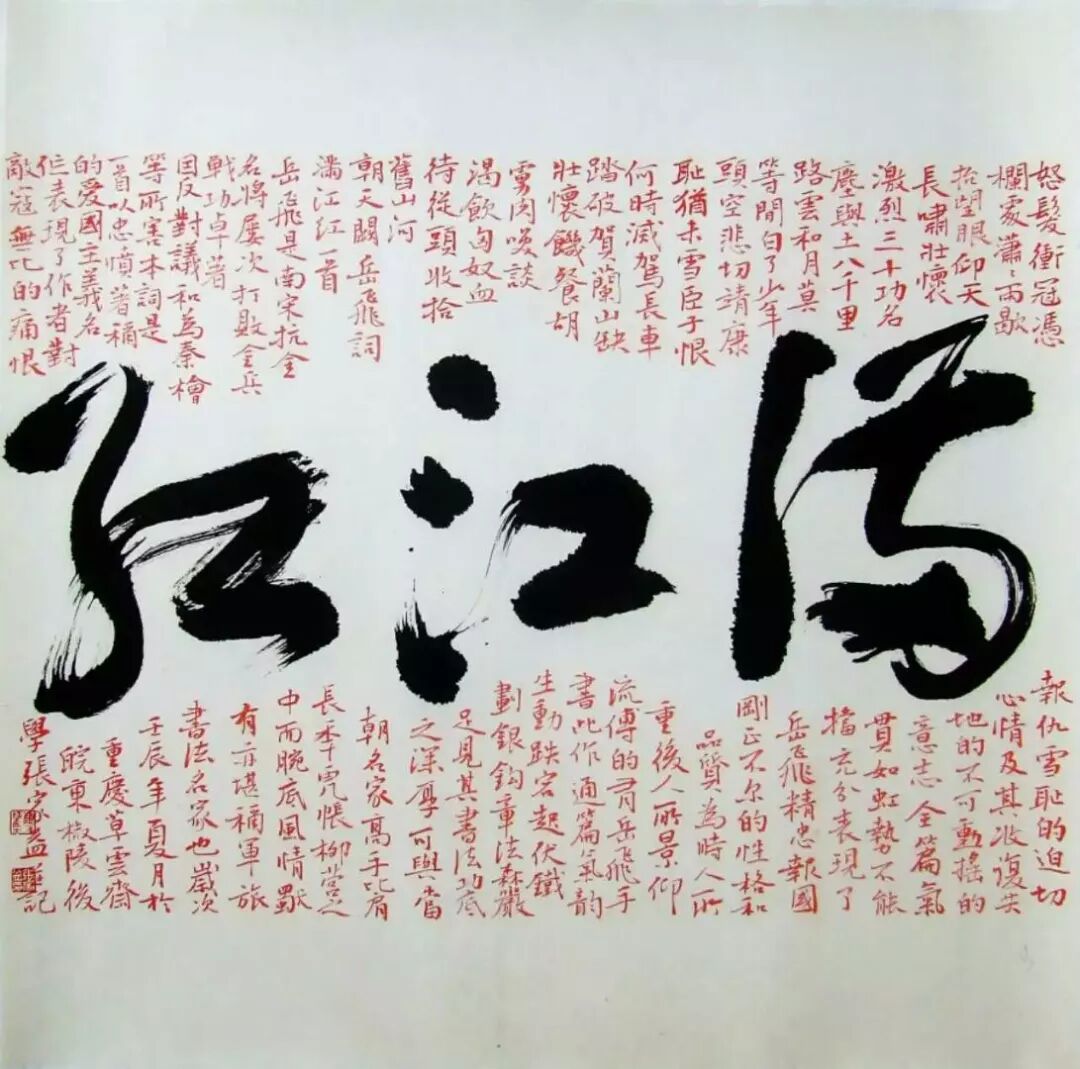 滿江紅
怒髮衝冠憑
欄處瀟〻雨歇
抬望眼仰天
長嘯壯懷
激烈三十功名
塵與土八千里
路雲和月莫
等間白了少年
頭空悲切靖康
恥猶未雪臣子恨
何時滅駕長車
踏破賀蘭山缺
壯懷饑餐胡
虜肉笑談
渴飲匈奴血
待從頭收拾
舊山河
朝天闕岳飛詞
滿江紅一首
岳飛是南宋抗金
名將屡次打敗金兵
戰功卓著
因反對議和為秦檜
等所害本詞是
一首以忠憤著稱
的愛國主義名
作表現了作者對
敵寇無比的痛恨
報仇雪恥的迫切
心情及其收復失
地的不可動搖的
意志全篇氣
貫如虹勢不能
擋充分表現了
岳飛精忠報國
剛正不尔的性格和
品質為時人所
重後人所景仰
流傳的有岳飛手
書此作通篇氣韵
生動跌宕起伏鐵
劃銀鈎章法森嚴
足見其書法功底
之深厚可與當
朝名家高手比肩
長年虎帳柳營之
中而腕底風情獸
有亦堪稱軍旅
書法名家也歲次
壬辰年夏月於
重慶草雲齋
皖東椒陵後
學張家益記